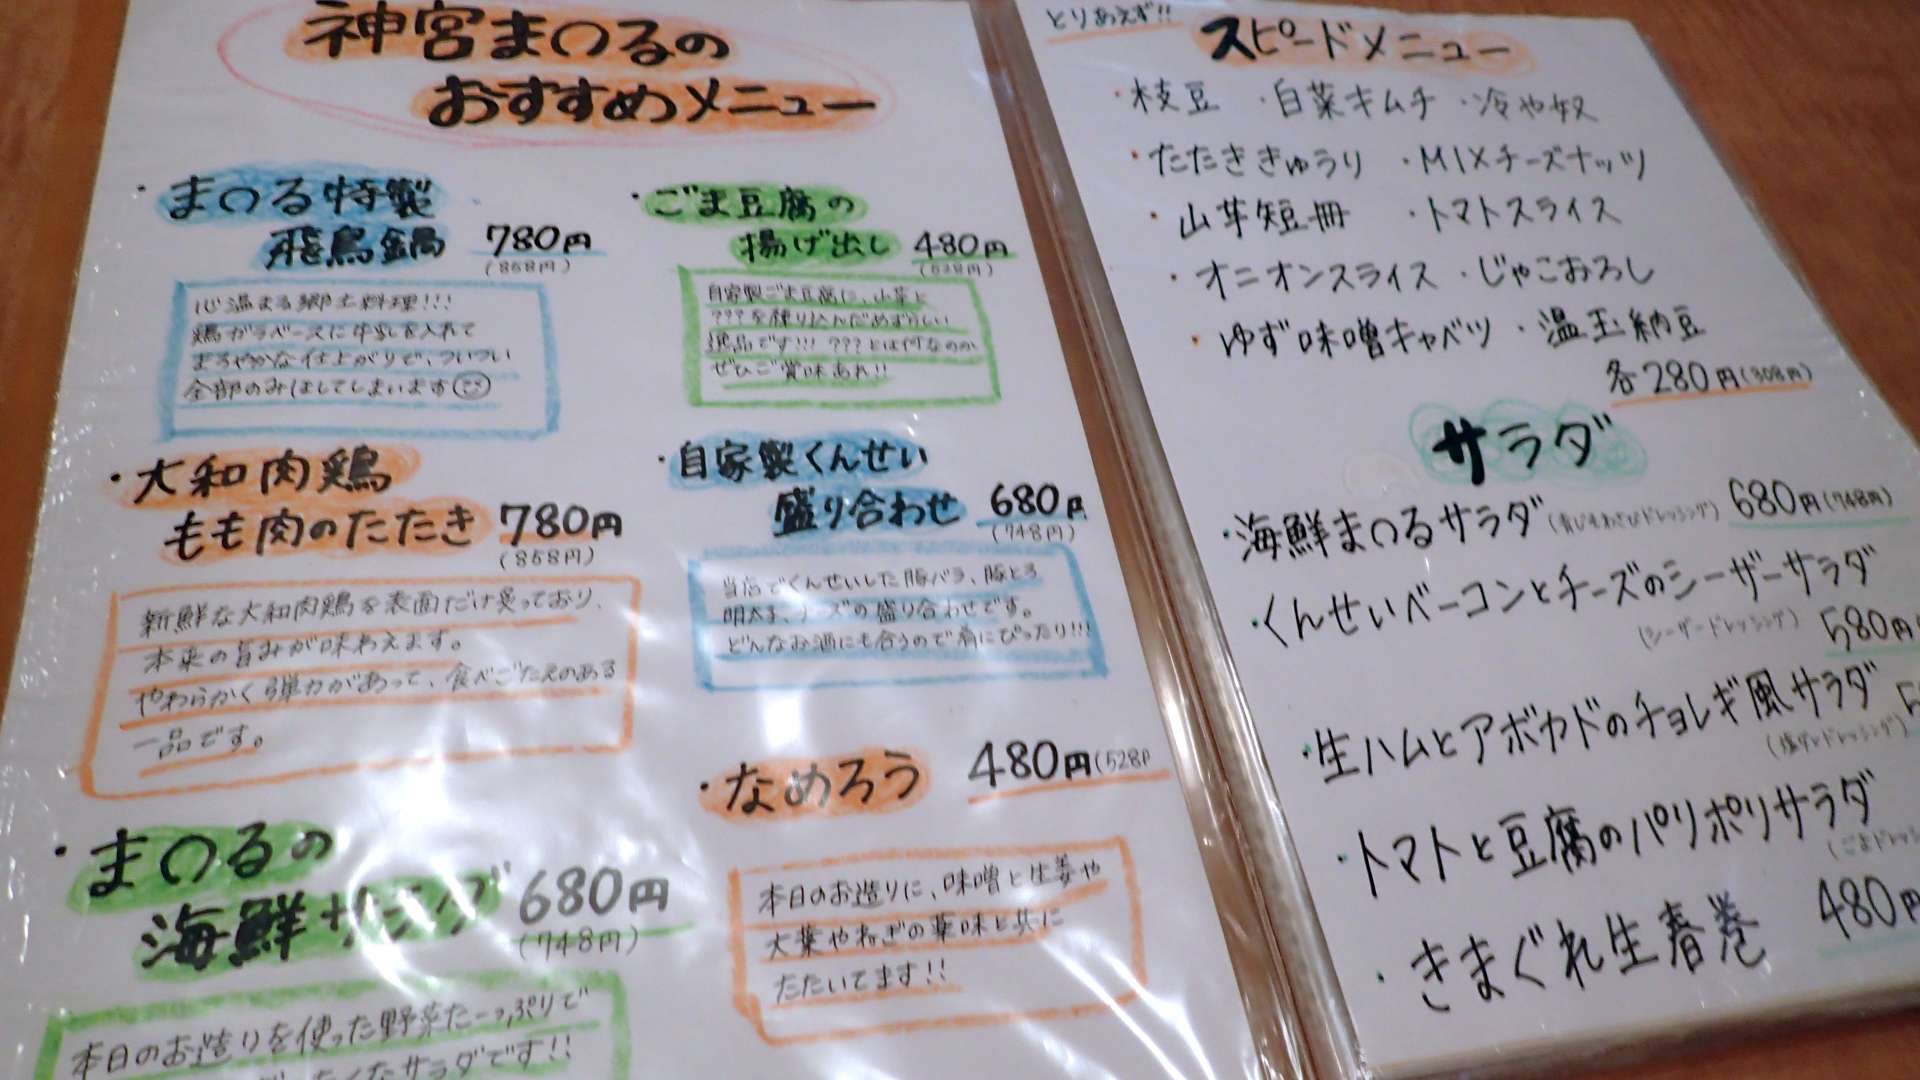 神宮まつるの
おすすめメニュー
・まつる特製
飛鳥鍋 780円
(858円)
心温まる郷土料理!!!
鶏ガラベースに牛乳を入れて
まろやかな仕上がりで、ついつい
全部のみほしてしまいます
・大和肉鶏
もも肉のたたき 780円
(858円)
新鮮な大和肉鶏を表面だけ炙っており、
本来の旨みが味わえます。
やわらかく弾力があって、食べごたえのある
一品です。
・まつるの
海鮮サラダ 680円
(748円)
本日のお造りを使った野菜たーっぷりで
サラダです!!
・ごま豆腐の
揚げ出し 480円
(528円)
自家製ごま豆腐に、山芋と
???を練り込んだめずらしい
逸品です!!! ???とは何なのか
ぜひご賞味あれ!!
・自家製くんせい
盛り合わせ 680円
(748円)
当店でくんせいした豚バラ、豚とろ
明太子、チーズの盛り合わせです。
どんなお酒にも合うので肴にぴったり!!!
・なめろう 480円(528円
本日のお造りに、味噌と生姜や
大葉やねぎの薬味と共に
たたいてます!!
とりあえず!!
スピードメニュー
・枝豆 ・白菜キムチ ・冷や奴
・たたききゅうり ・MIXチーズナッツ
・山芋短冊 ・トマトスライス
・オニオンスライス ・じゃこおろし
・ゆず味噌キャベツ ・温玉納豆
各280円(308円)
サラダ
・海鮮まつるサラダ(青じそわさびドレッシング) 680円(748円)
・くんせいベーコンとチーズのシーザーサラダ
(シーザードレッシング) 580円
・生ハムとアボカドのチョレギ風サラダ
(塩ダレドレッシング)
・トマトと豆腐のパリポリサラダ
(ごまドレッシ
480円
・きまぐれ生春巻